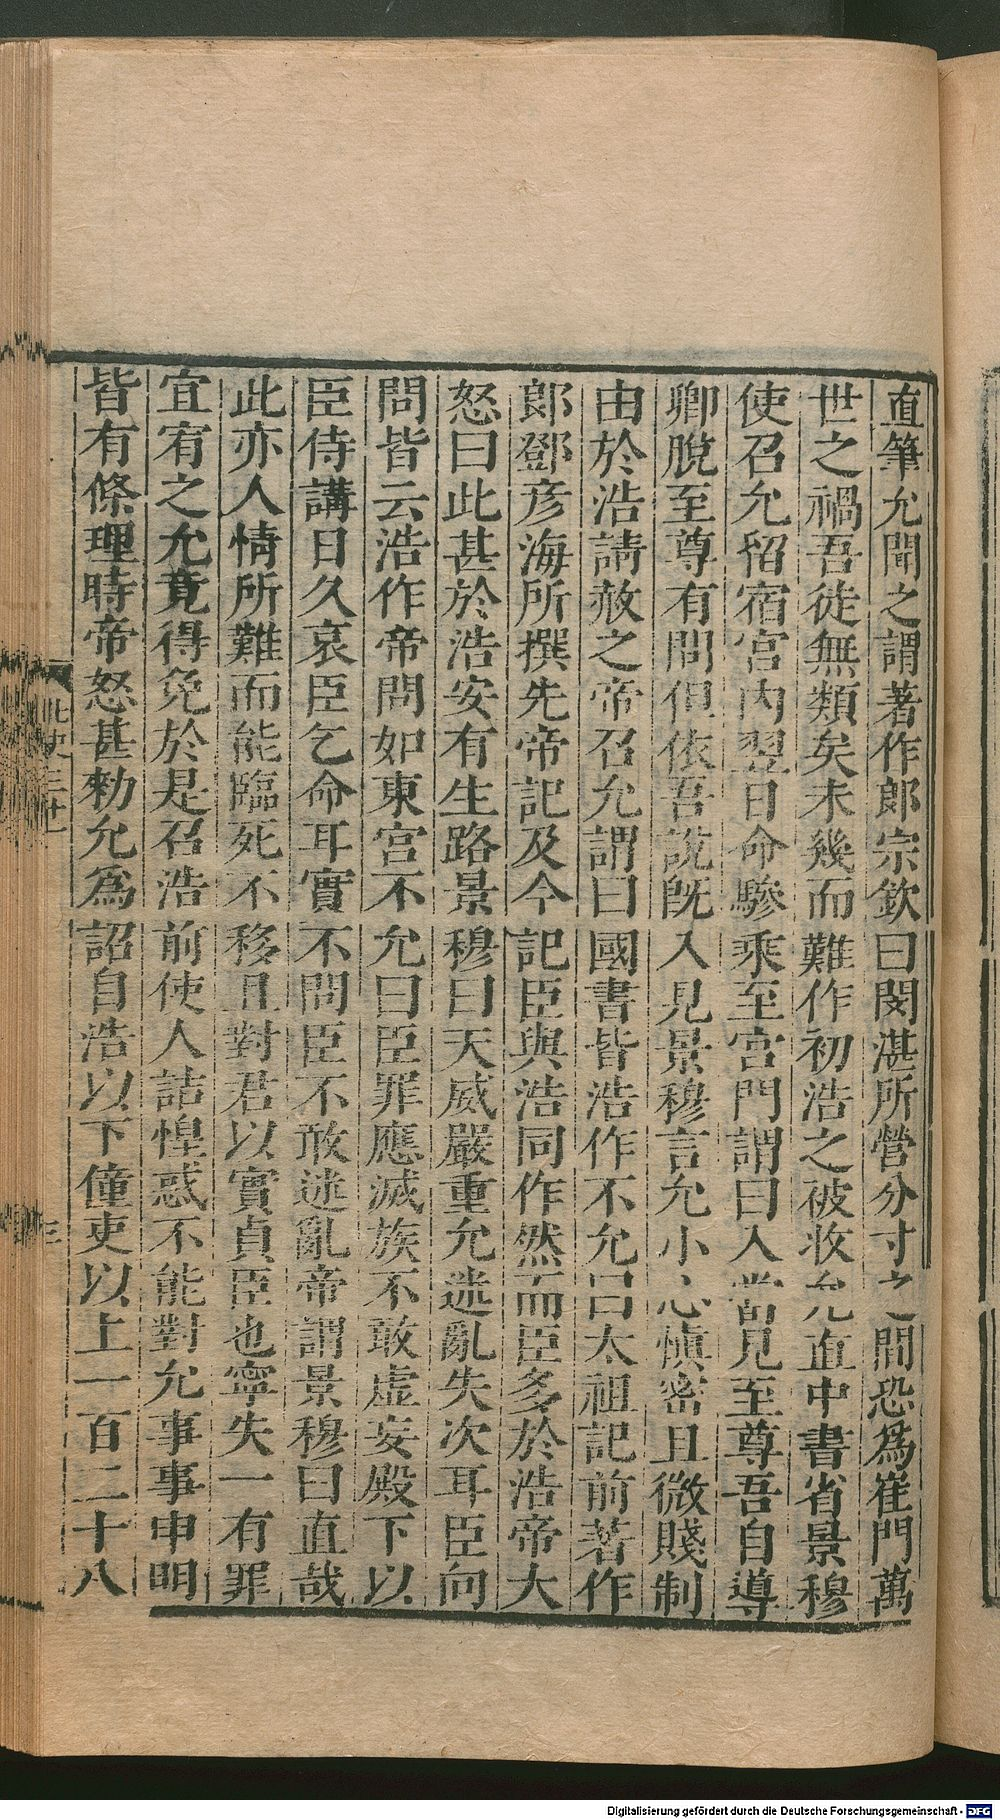 直筆允聞之謂著作郎宗欽曰閔湛所營分寸之間恐爲崔門萬
世之禍吾徒無類矣未幾而難作初浩之被收允直中書省景穆
使召允留宿宮内翌日命驂乘至宮門謂曰入當見至尊吾自導
卿脫至尊有問但依吾說旣入見景穆言允小心慎密且微賤制
由於浩請赦之帝召允謂曰國書皆浩作不允曰太祖記前著作
郎鄧彦海所撰先帝記及今記臣與浩同作然而臣多於浩帝大
怒曰此甚於浩安有生路景穆曰天威嚴重允迷亂失次耳臣向
問皆云浩作帝問如東宮不允曰臣罪應滅族不敢虚妄殿下以
臣侍講日久哀臣乞命耳實不問臣不敢迷亂帝謂景穆曰直哉
此亦人情所難而能臨死不移且對君以實貞臣也寧失一有罪
宜宥之允竟得免於是召浩前使人詰惶惑不能對允事事申明
皆有條理時帝怒甚勑允爲詔自浩以下僮吏以上一百二十八
北史三十一
三
Digitalisierung gefördert durch die Deutsche Forschungsgemeinschaft - DFG